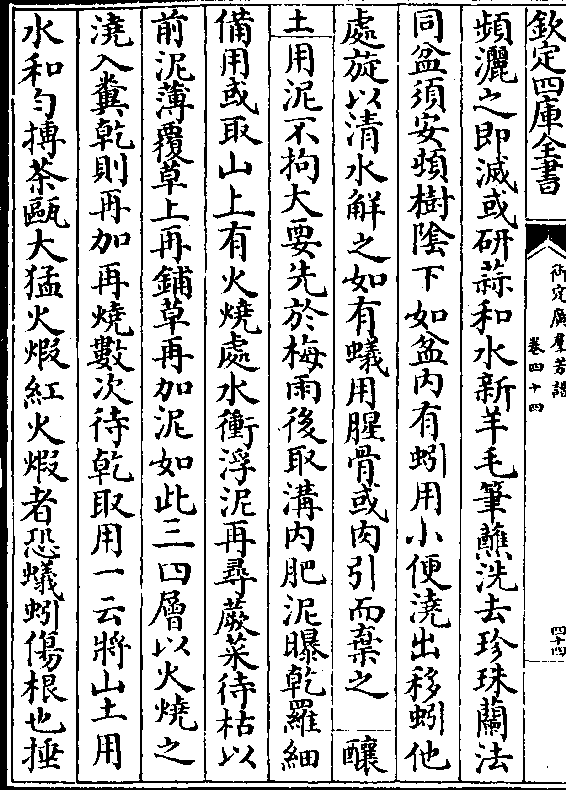 欽定四庫全書
御定廣羣芳譜
卷四十四
四十四
頻灑之即滅或研蒜和水新羊毛筆蘸洗去珍珠蘭法
同盆須安頓樹陰下如盆内有蚓用小便澆出移蚓他
處旋以清水解之如有蟻用腥骨或肉引而棄之　釀
土用泥不拘大要先於梅雨後取溝内肥泥曝乾羅細
備用或取山上有火燒處水衝浮泥再尋蕨菜待枯以
前泥薄覆草上再鋪草再加泥如此三四層以火燒之
澆入糞乾則再加再燒數次待乾取用一云將山土用
水和勻搏茶甌大猛火煅紅火煅者恐蟻蚓傷根也捶